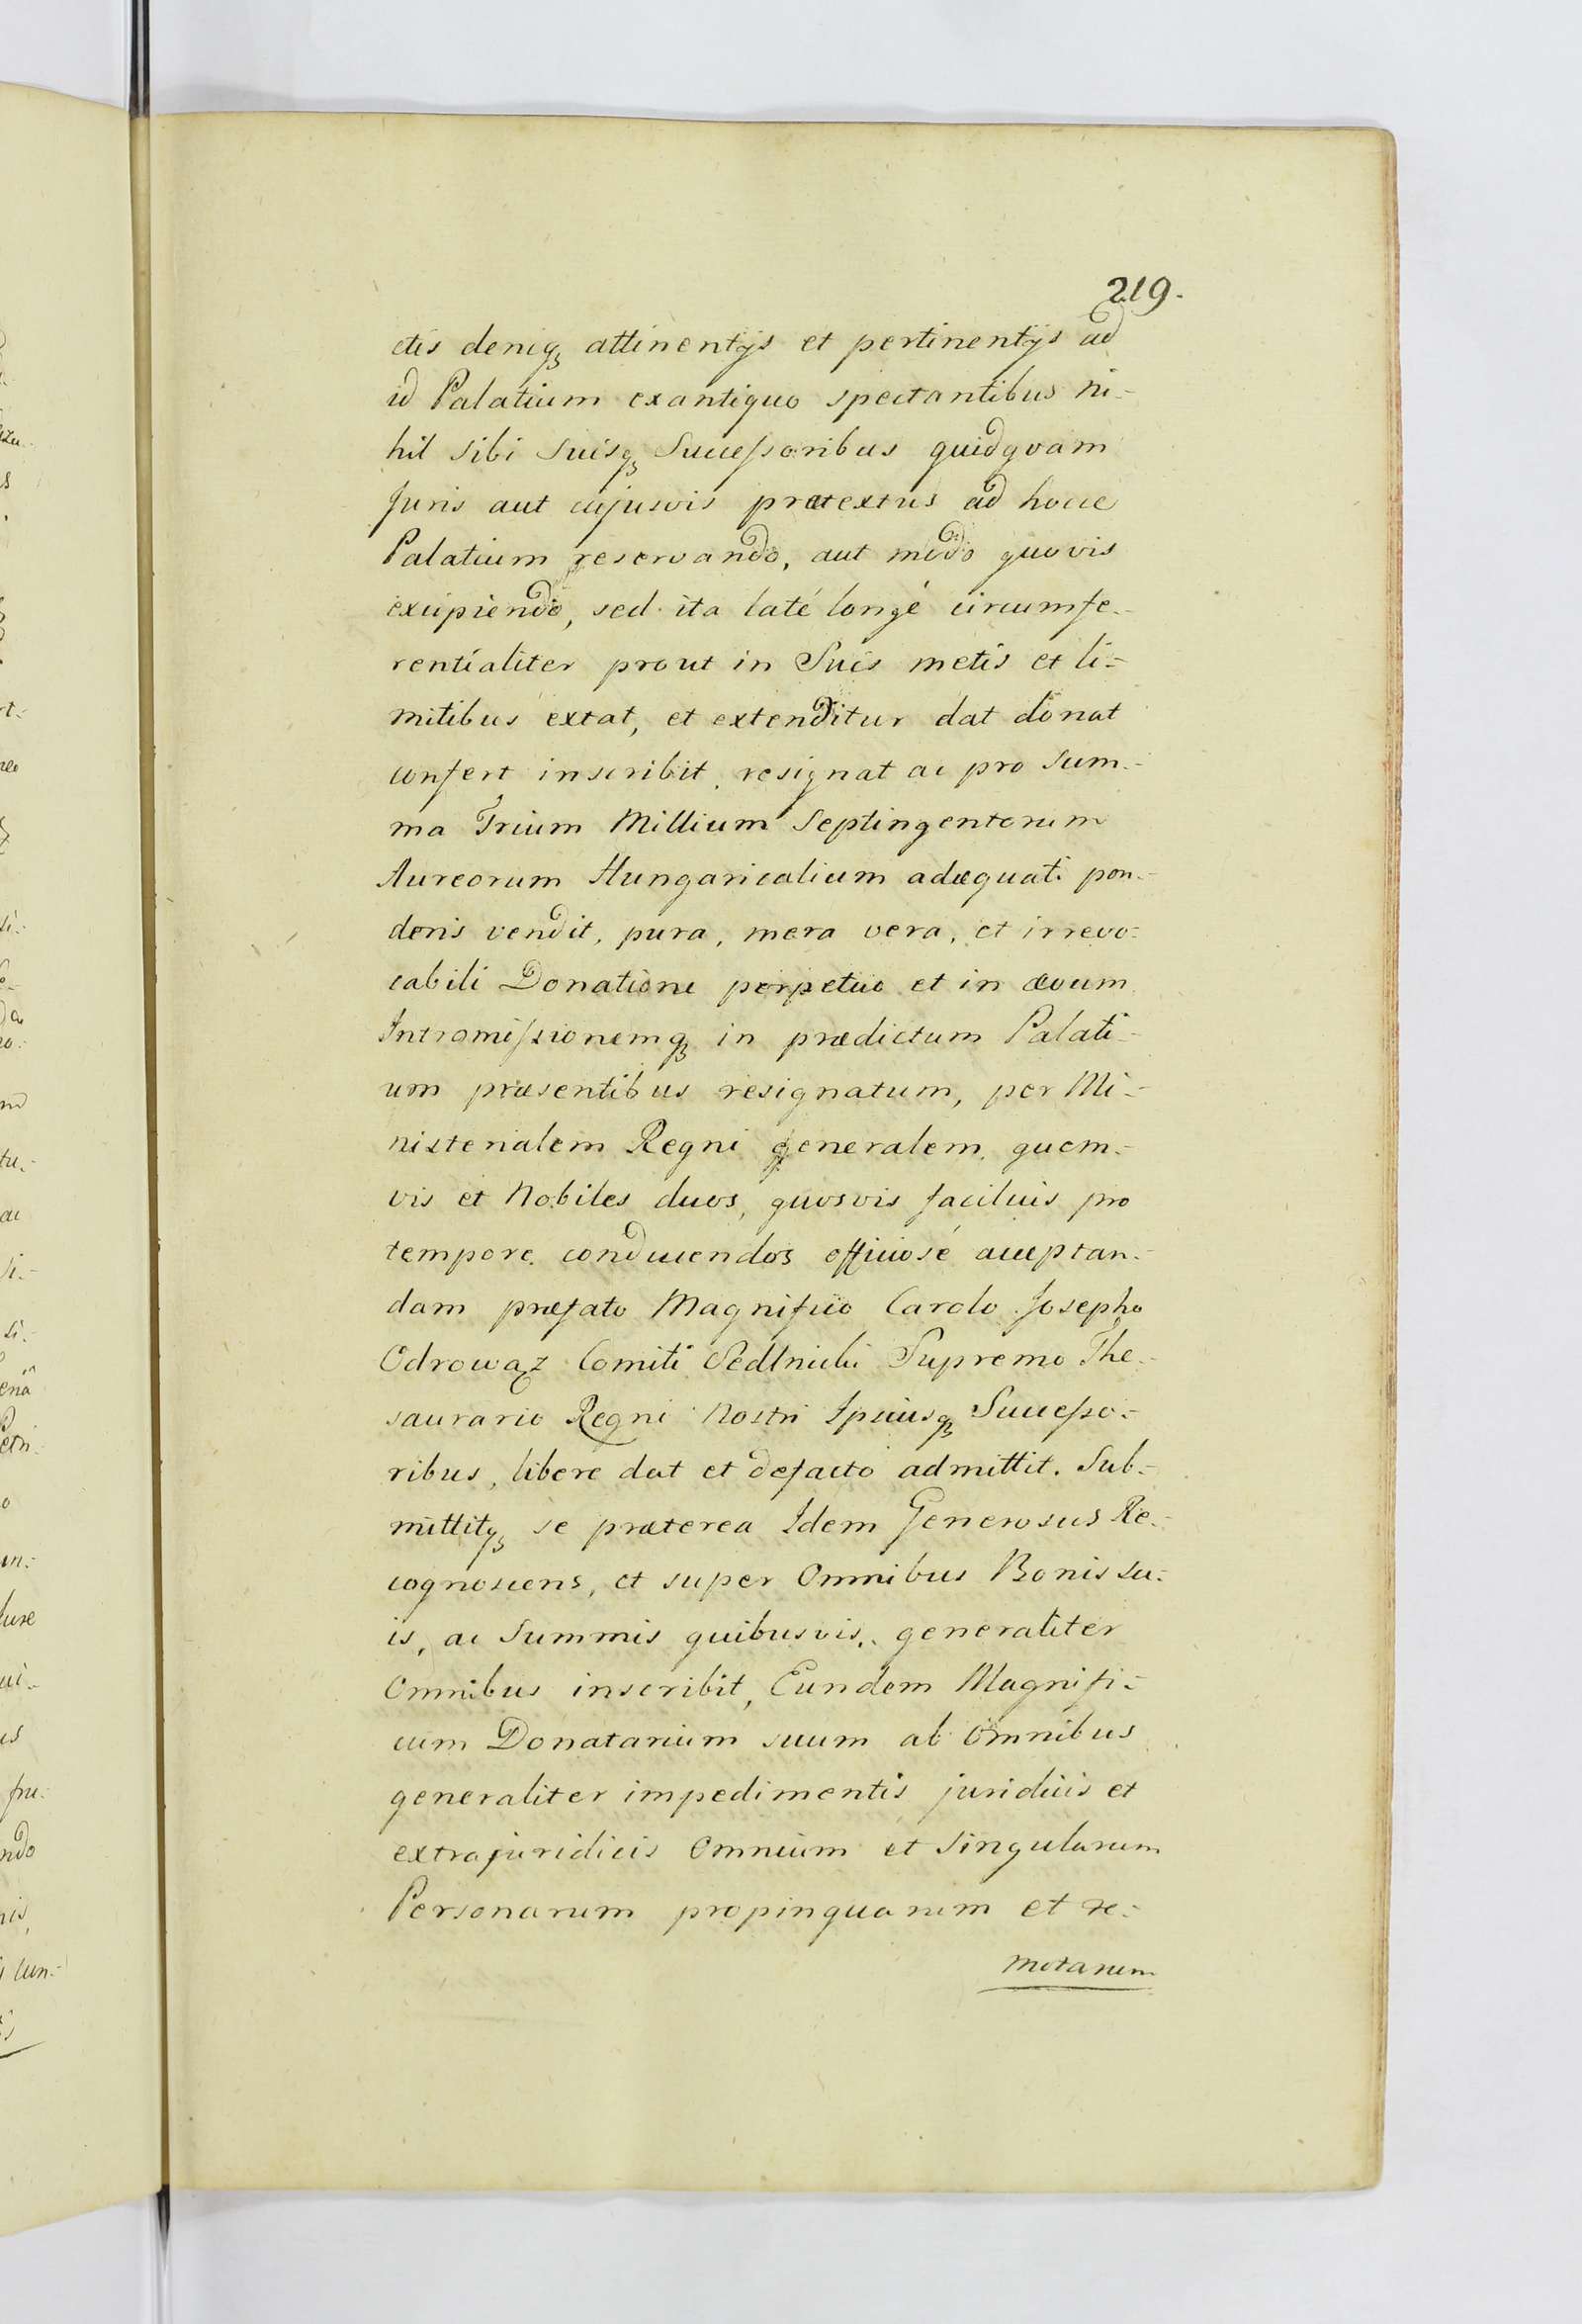 219.
ctis deniq₃ attinentijs et pertinentijs ad
id Palatium exantiquo spectantibus ni-
hil sibi suisq₃ Successoribus quidquam
Juris aut cujusvis prætextus ad hocce
Palatium reservando, aut modo quovis
excipiendo, sed ita laté longé circumfe-
rentialiter prout in Suis metis et li-
mitibus extat, et extenditur dat donat
confert inscribit, resignat ac pro sum-
ma Trium Millium Septingentorum
Aureorum Hungaricalium adæquati pon-
deris vendit, pura, mera vera, et irrevo-
cabili Donatione perpetuo et in ævum
Intromissionemq₃ in prædictum Palati-
um præsentibus resignatum, per Mi-
nisterialem Regni generalem quem-
vis et Nobiles duos, quosvis facilius pro
tempore conducendos officiosé acceptan-
dam præfato Magnifico Carolo Josepho
Odrowąz Comiti Sedlnicki Supremo The-
saurario Regni Nostri Ipsiusq₃ Successo-
ribus, libere dat et defacto admittit. Sub-
mittitq₃ se præterea Idem Generosus Re-
cognoscens, et super Omnibus Bonis su-
is, ac Summis quibusvis, generaliter
Omnibus inscribit, Eundem Magnifi-
cum Donatarium suum ab omnibus
generaliter impedimentis juridicis et
extrajuridicis Omnium et Singularum
Personarum propinquarum et re-
motarum